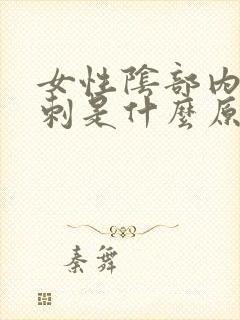 女性陰部內
刺是什麼原
秦舞